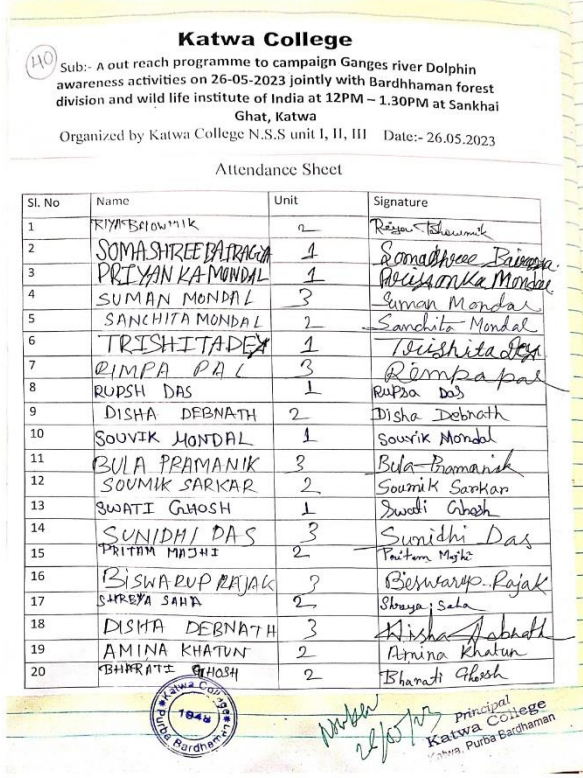 Katwa College
40
Sub:- A out reach programme to campaign Ganges river Dolphin
awareness activities on 26-05-2023 jointly with Bardhhaman forest
division and wild life institute of India at 12PM – 1.30PM at Sankhai
Ghat, Katwa
Organized by Katwa College N.S.S unit I, II, III Date:- 26.05.2023
Attendance Sheet
Sl. No Name Unit Signature
1 RIYA BHOWMIK 2 Riya Bhowmik
2 SOMASHREE BAIRAGYA 1 Somashree Bairagya
3 PRIYANKA MONDAL 1 Priyanka Mondal
4 SUMAN MONDAL 3 Suman Mondal
5 SANCHITA MONDAL 2 Sanchita Mondal
6 TRISHITA DEY 1 Trishita Dey
7 RIMPA PAL 3 Rempa pal
8 RUPSH DAS 1 RUPSA DAS
9 DISHA DEBNATH 2 Disha Debnath
10 SOUVIK MONDAL 1 Souvik Mondal
11 BULA PRAMANIK 3 Bula Pramanik
12 SOUMIK SARKAR 2 Soumik Sarkar
13 SWATI GHOSH 1 Swati Ghosh
14 SUNIDHI DAS 3 Sunidhi Das
15 PRITAM MAJHI 2 Pritam Majhi
16 BISWARUP RAJAK 3 Beswarup Rajak
17 SHREYA SAHA 2 Shreya Saha
18 DISHA DEBNATH 3 Disha Debnath
19 AMINA KHATUN 2 Amina Khatun
20 BHARATI GHOSH 2 Bharati Ghosh
Katwa College
1948
Purba Bardhaman
26/05/23
Principal
Katwa College
Katwa, Purba Bardhaman